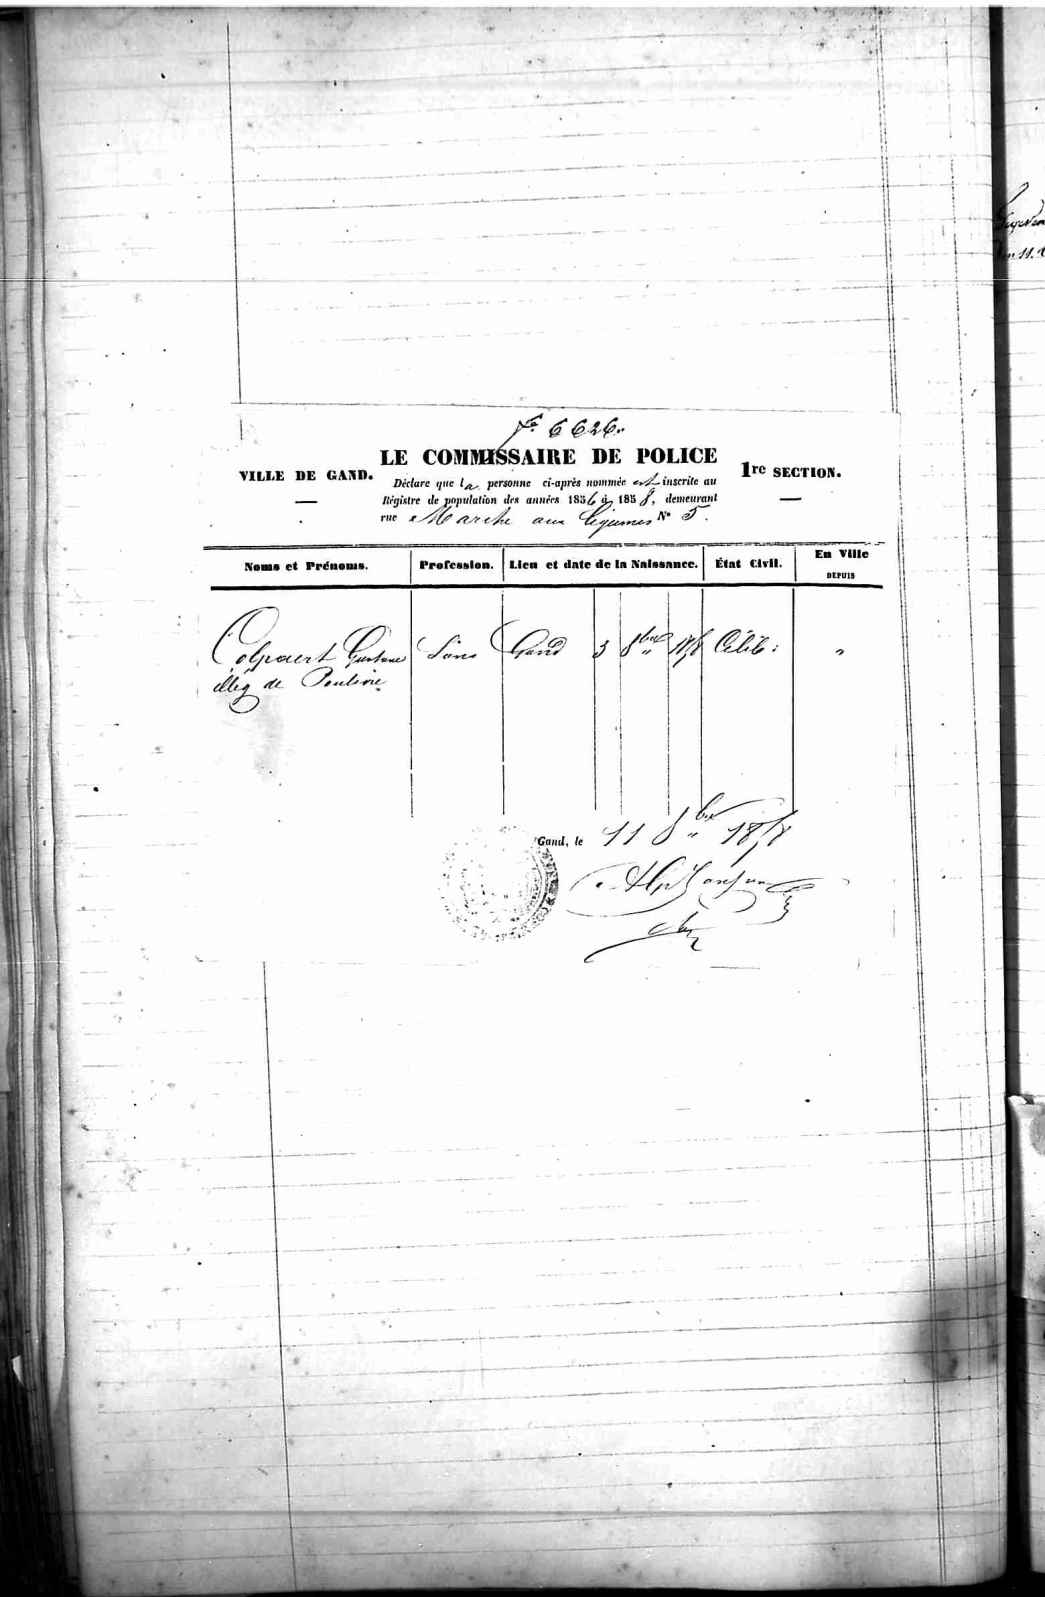 fo 6626.
LE COMMISSAIRE DE POLICE
VILLE DE GAND.
1re SECTION.
Déclare que la personne ci-après nommée est inscrite au
Régistre de population des années 1856 à 1858, demeurant
rue Marche aux légumes No 5.
Noms et Prénoms. Profession. Lieu et date de la Naissance. État Civil. En Ville
DEPUIS
Colpaert Gustave Sans Gand 3 8bre 1858 Célib: "
illeg de Pauline
Gand, le 11 8bre 1858